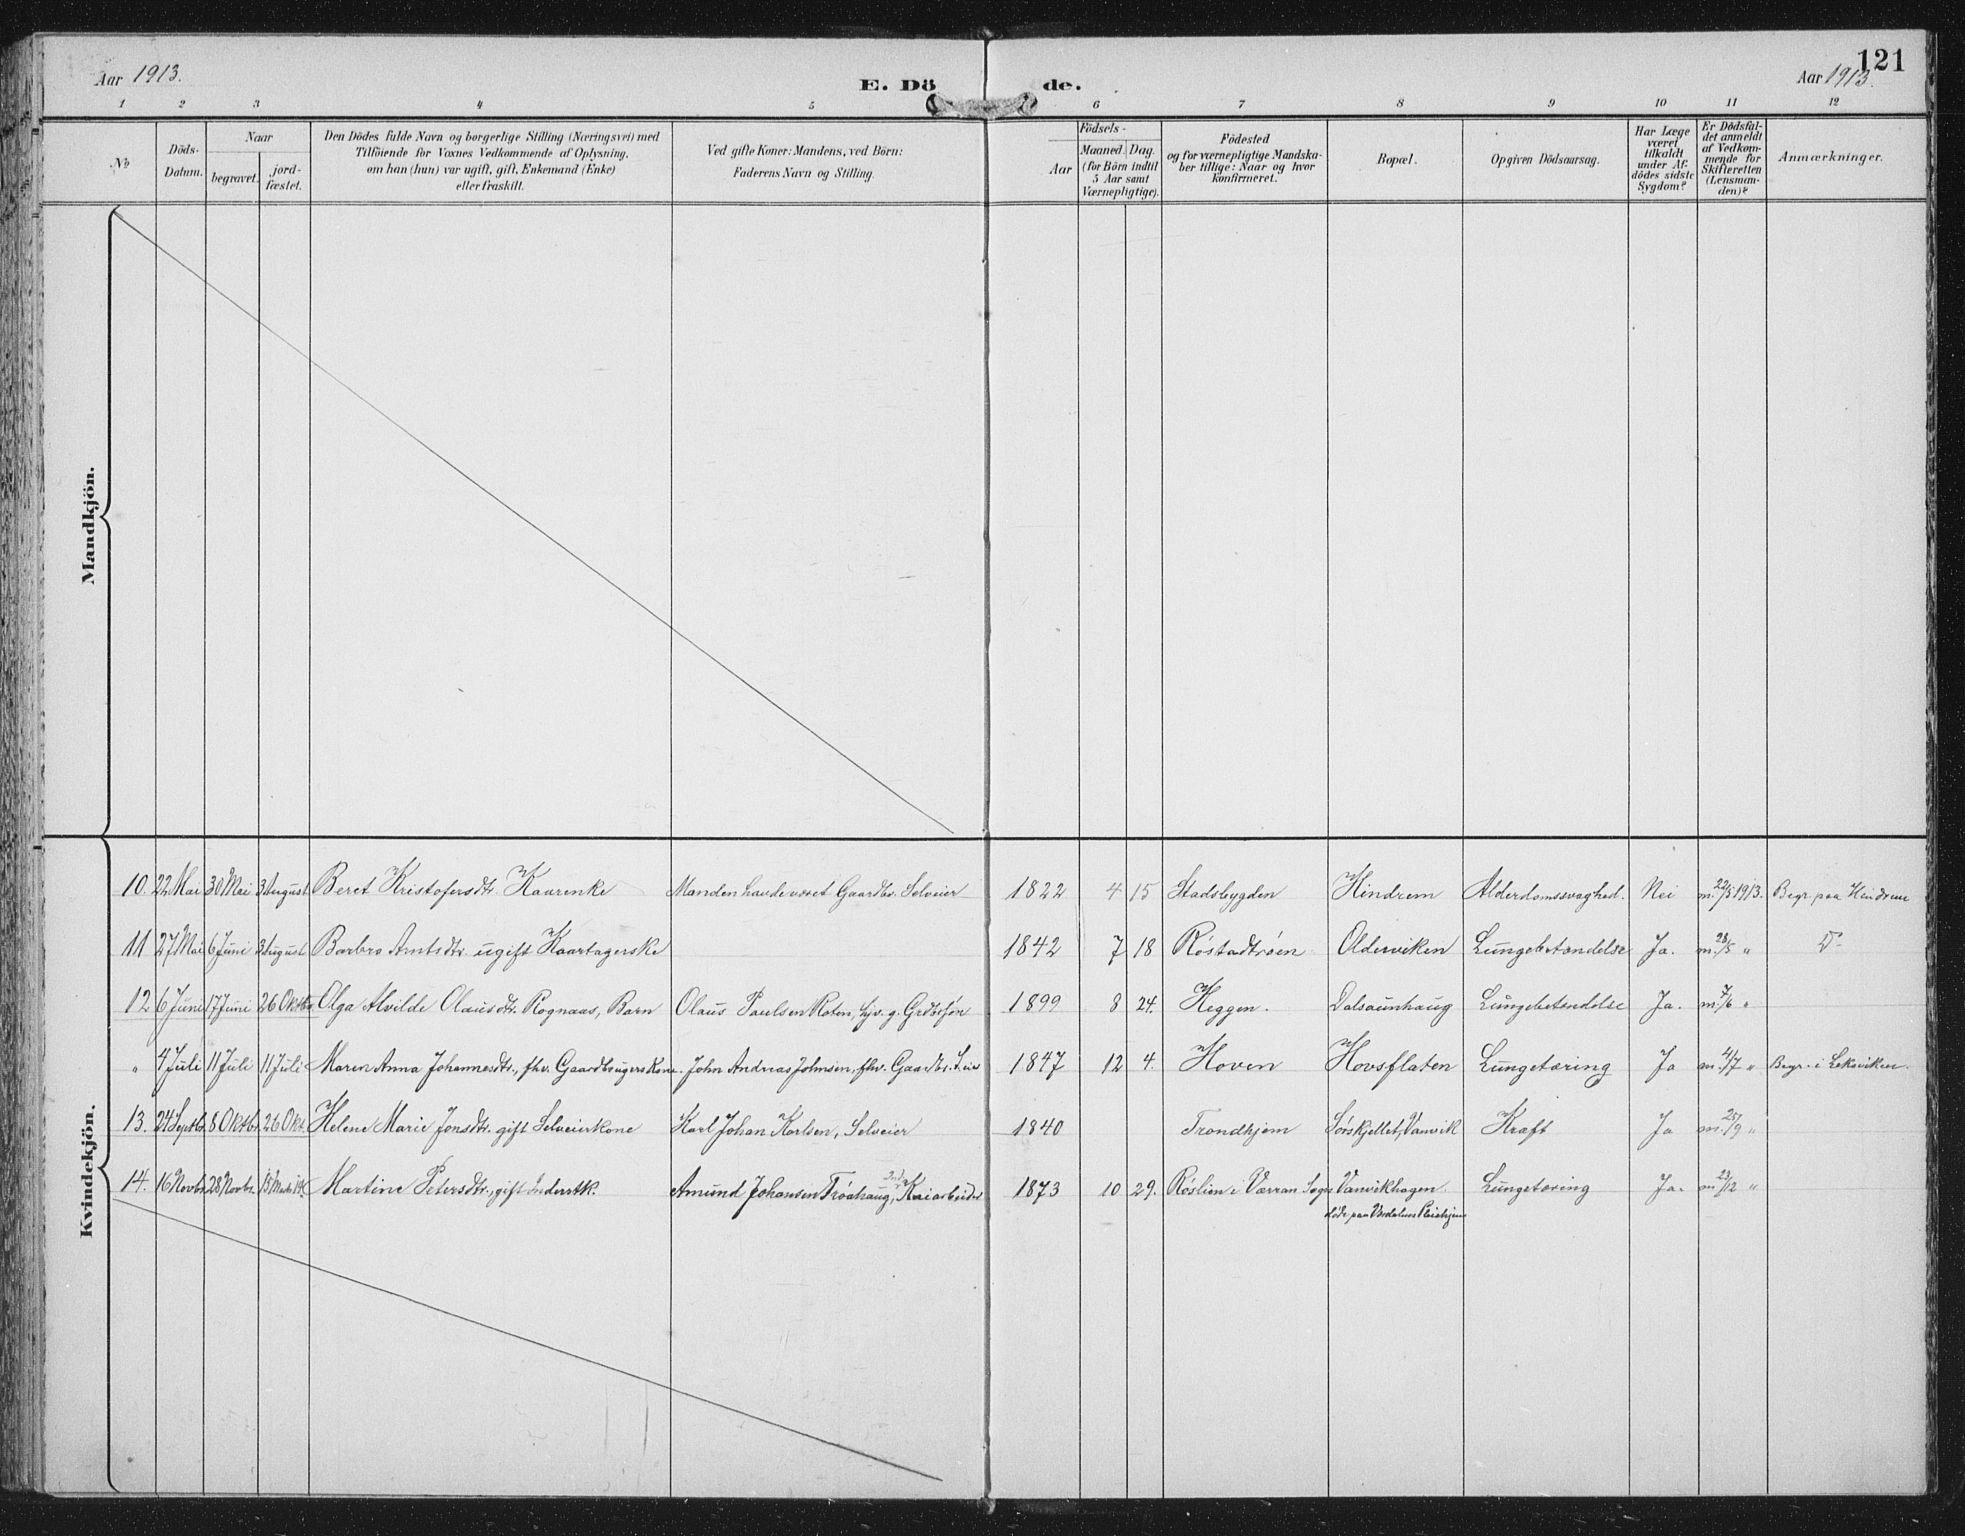 121
Aar 1913.
E. Dö de.
Aar 1913.
1 2 3 4 5 6 7 8 9 10 11 12
No
Döds-
Datum.
Naar
begravet.
jord-
fæstet.
Den Dödes fulde Navn og borgerlige Stilling (Næringsvei) med
Tilföiende for Voxnes Vedkommende af Oplysning,
om han (hun) var ugift, gift, Enkemand (Enke)
eller fraskilt.
Ved gifte Koner: Mandens, ved Börn:
Faderens Navn og Stilling.
Födsels-
Aar
Maaned. Dag.
(for Börn indtil
5 Aar samt
Værnepligtige).
Födested
og for værnepligtige Mandska-
ber tillige: Naar og hvor
konfirmeret.
Bopæl.
Opgiven Dödsaarsag.
Har Læge
været
tilkaldt
under Af-
dödes sidste
Sygdom?
Er Dödsfal-
det anmeldt
af Vedkom-
mende for
Skifteretten
(Lensman-
den)?
Anmærkninger.
Mandkjön.
Kvindekjön.
10. 22 Mai 30 Mai 3 August Beret Kristofersdtr. Kaarenke Manden havde været Gaardbr. Selveier 1822 4 15 Stadsbygden Hindrem Alderdomssvaghed. Nei m. 22/5 1913. Begr. paa Hindrem
11 27 Mai 6 Juni 3 August Barbro Arntsdtr. ugift Kaartagerske 1842 7 18 Róstadtróen Alderviken Lungebetændelse Ja. m. 28/5 "
12 6 Juni 17 Juni 26 Oktbr. Olga Alvilde Olausdtr. Rognaas, Barn Olaus Paulsen Roten, hjv. g. Grdbrsón 1899 8 24. Heggen. Dalsaunhaug Lungebetændelse Ja. m. 7/6 "
" 4 Juli 11 Juli 11 Juli Maren Anna Johannesdtr., fhv. Gaardbrugerskone. John Andreas Johnsen, fhv. Gaardbr. S.eier 1847 12 4. Hoven Hovsflaten Lungetæring Ja m. 4/7 " Begr. i Leksviken.
13. 24 Septbr. 8 Oktbr. 26 Okt. Helene Marie Jonsdtr. gift Selveierkone Karl Johan Karlsen, Selveier 1840 Trondhjem Sórskjellet, Vanvik Kræft Ja m. 25/9 "
14. 16 Novbr. 28 Novbr. Martine Petersdtr., gift Inderstk. Amund Johansen Tróahaug, Kaiarbeider 1873 10 29. Róslien i Værran Sogn Vanvikhagen. Lungetæring Ja. m. 23/12 "
døde paa Verdalens Pleiehjem